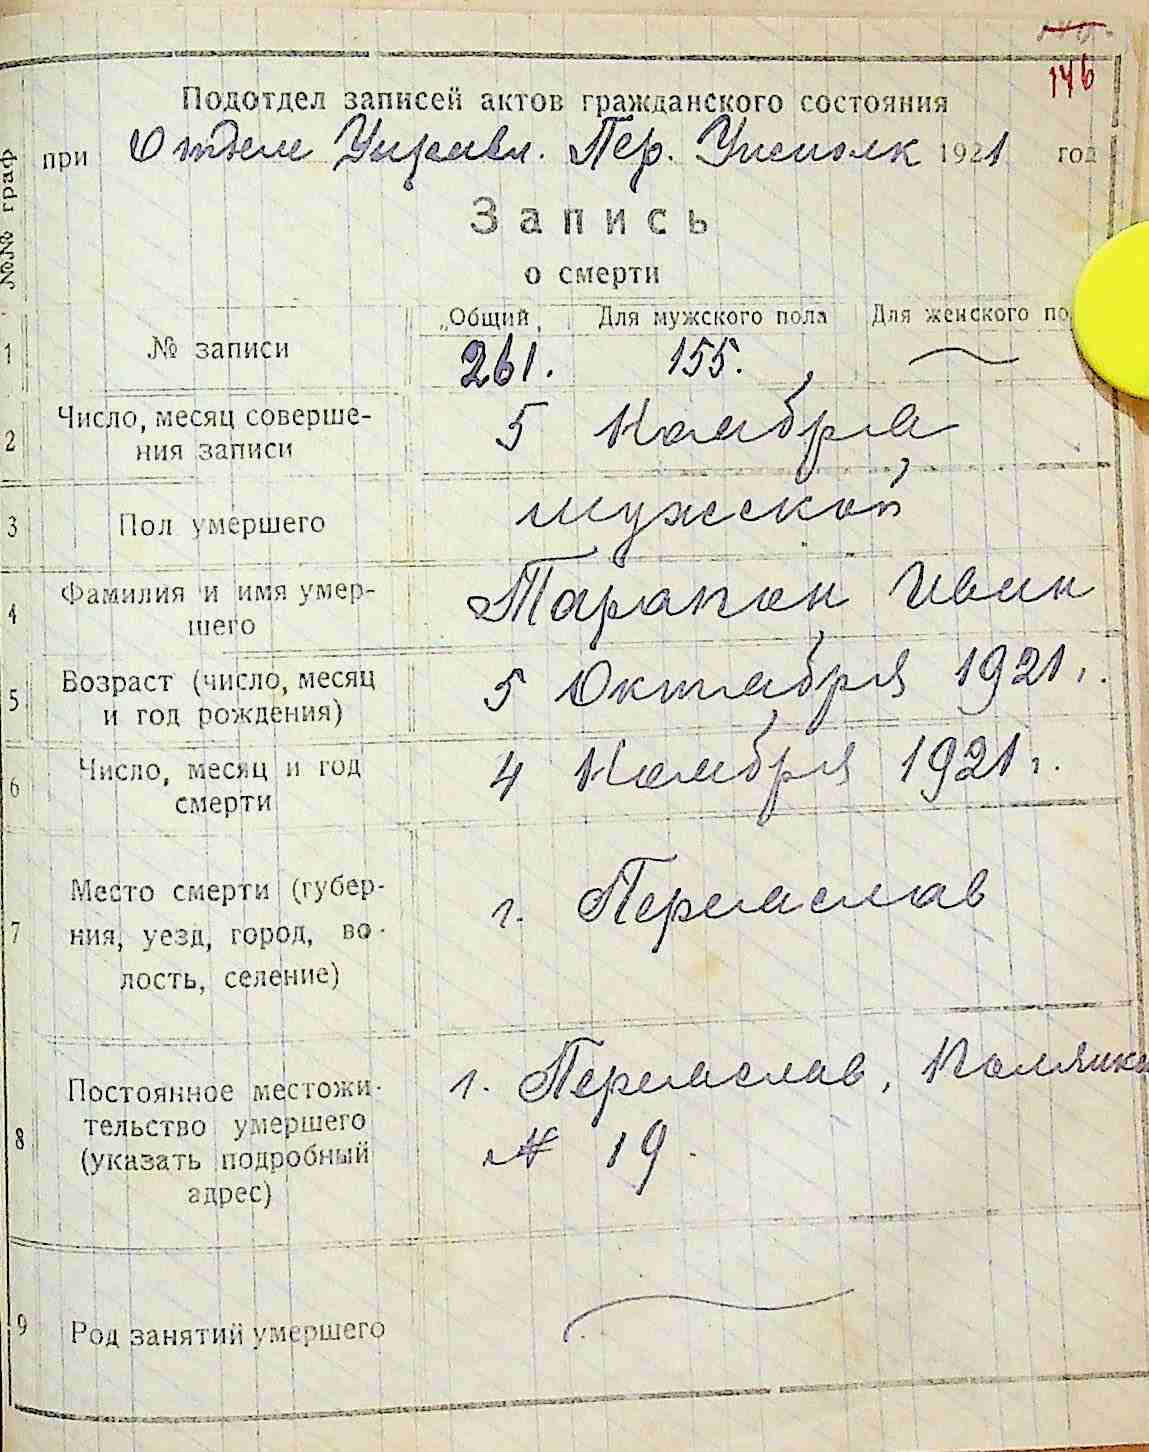 146
Подотдел записей актов гражданского состояния
при Отделе Управл. Пер. Уисполк 1921 год
№№ граф
Запись
о смерти
„Общий„ Для мужского пола Для женского по
1 № записи 261. 155.
2 Число, месяц соверше-
ния записи 5 Ноября
3 Пол умершего мужской
4 Фамилия и имя умер-
шего Тарапон Иван
5 Возраст (число, месяц
и год рождения) 5 Октября 1921 г.
6 Число, месяц и год
смерти 4 Ноября 1921 г.
7 Место смерти (губер-
ния, уезд, город, во-
лость, селение) г. Переяслав
8 Постоянное местожи-
тельство умершего
(указать подробный
адрес) г. Переяслав,
№ 19.
9 Род занятий умершего